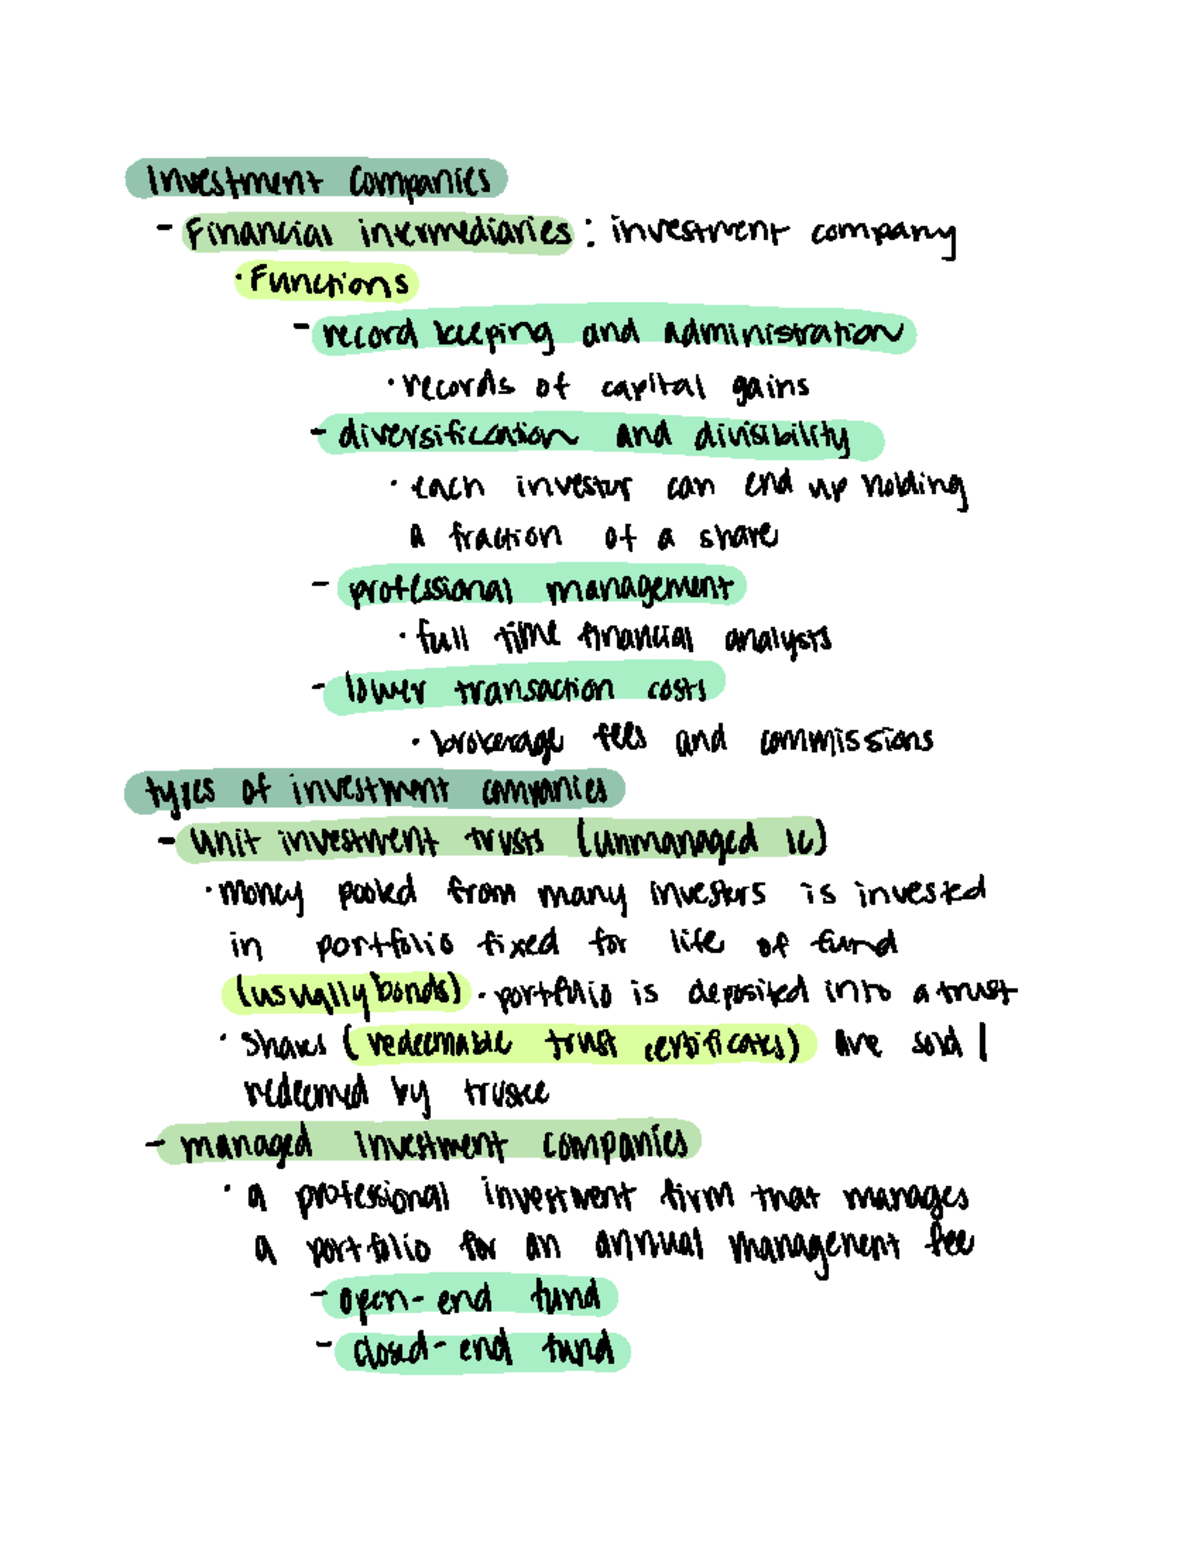 Investment Companies
- Financial intermediaries : investment company
· Functions
- record keeping and administration
· records of capital gains
- diversification and divisibility
· each investor can end up holding
a fraction of a share
- professional management
· full time financial analysts
- lower transaction costs
· brokerage fees and commissions
types of investment companies
- Unit investment trusts (unmanaged IC)
· money pooled from many investors is invested
in portfolio fixed for life of fund
(usually bonds) · portfolio is deposited into a trust
· Shares (redeemable trust certificates) are sold |
redeemed by trustee
- managed investment companies
· a professional investment firm that manages
a portfolio for an annual management fee
- open-end fund
- closed-end fund